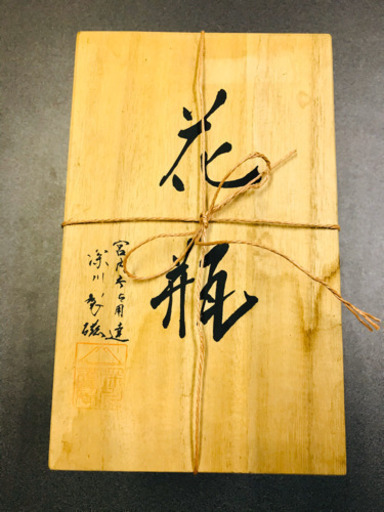 花瓶
宮内庁御用達
深川製磁